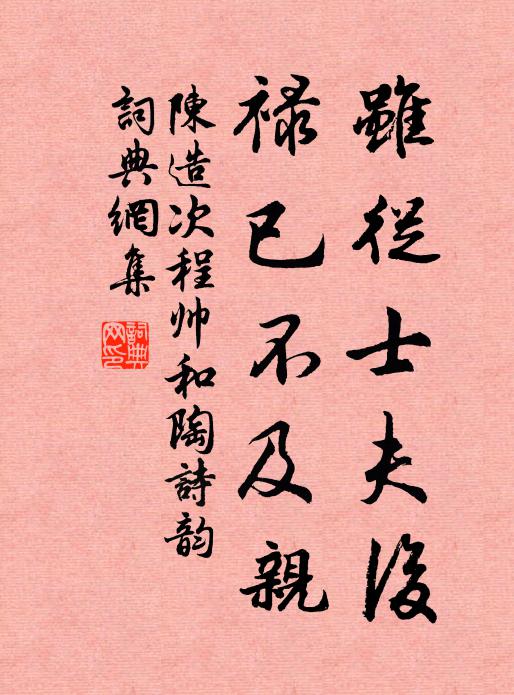 雖從士夫後
禄已不及親
陳造次程帅和陶詩韵
詞典網集
詞典网印